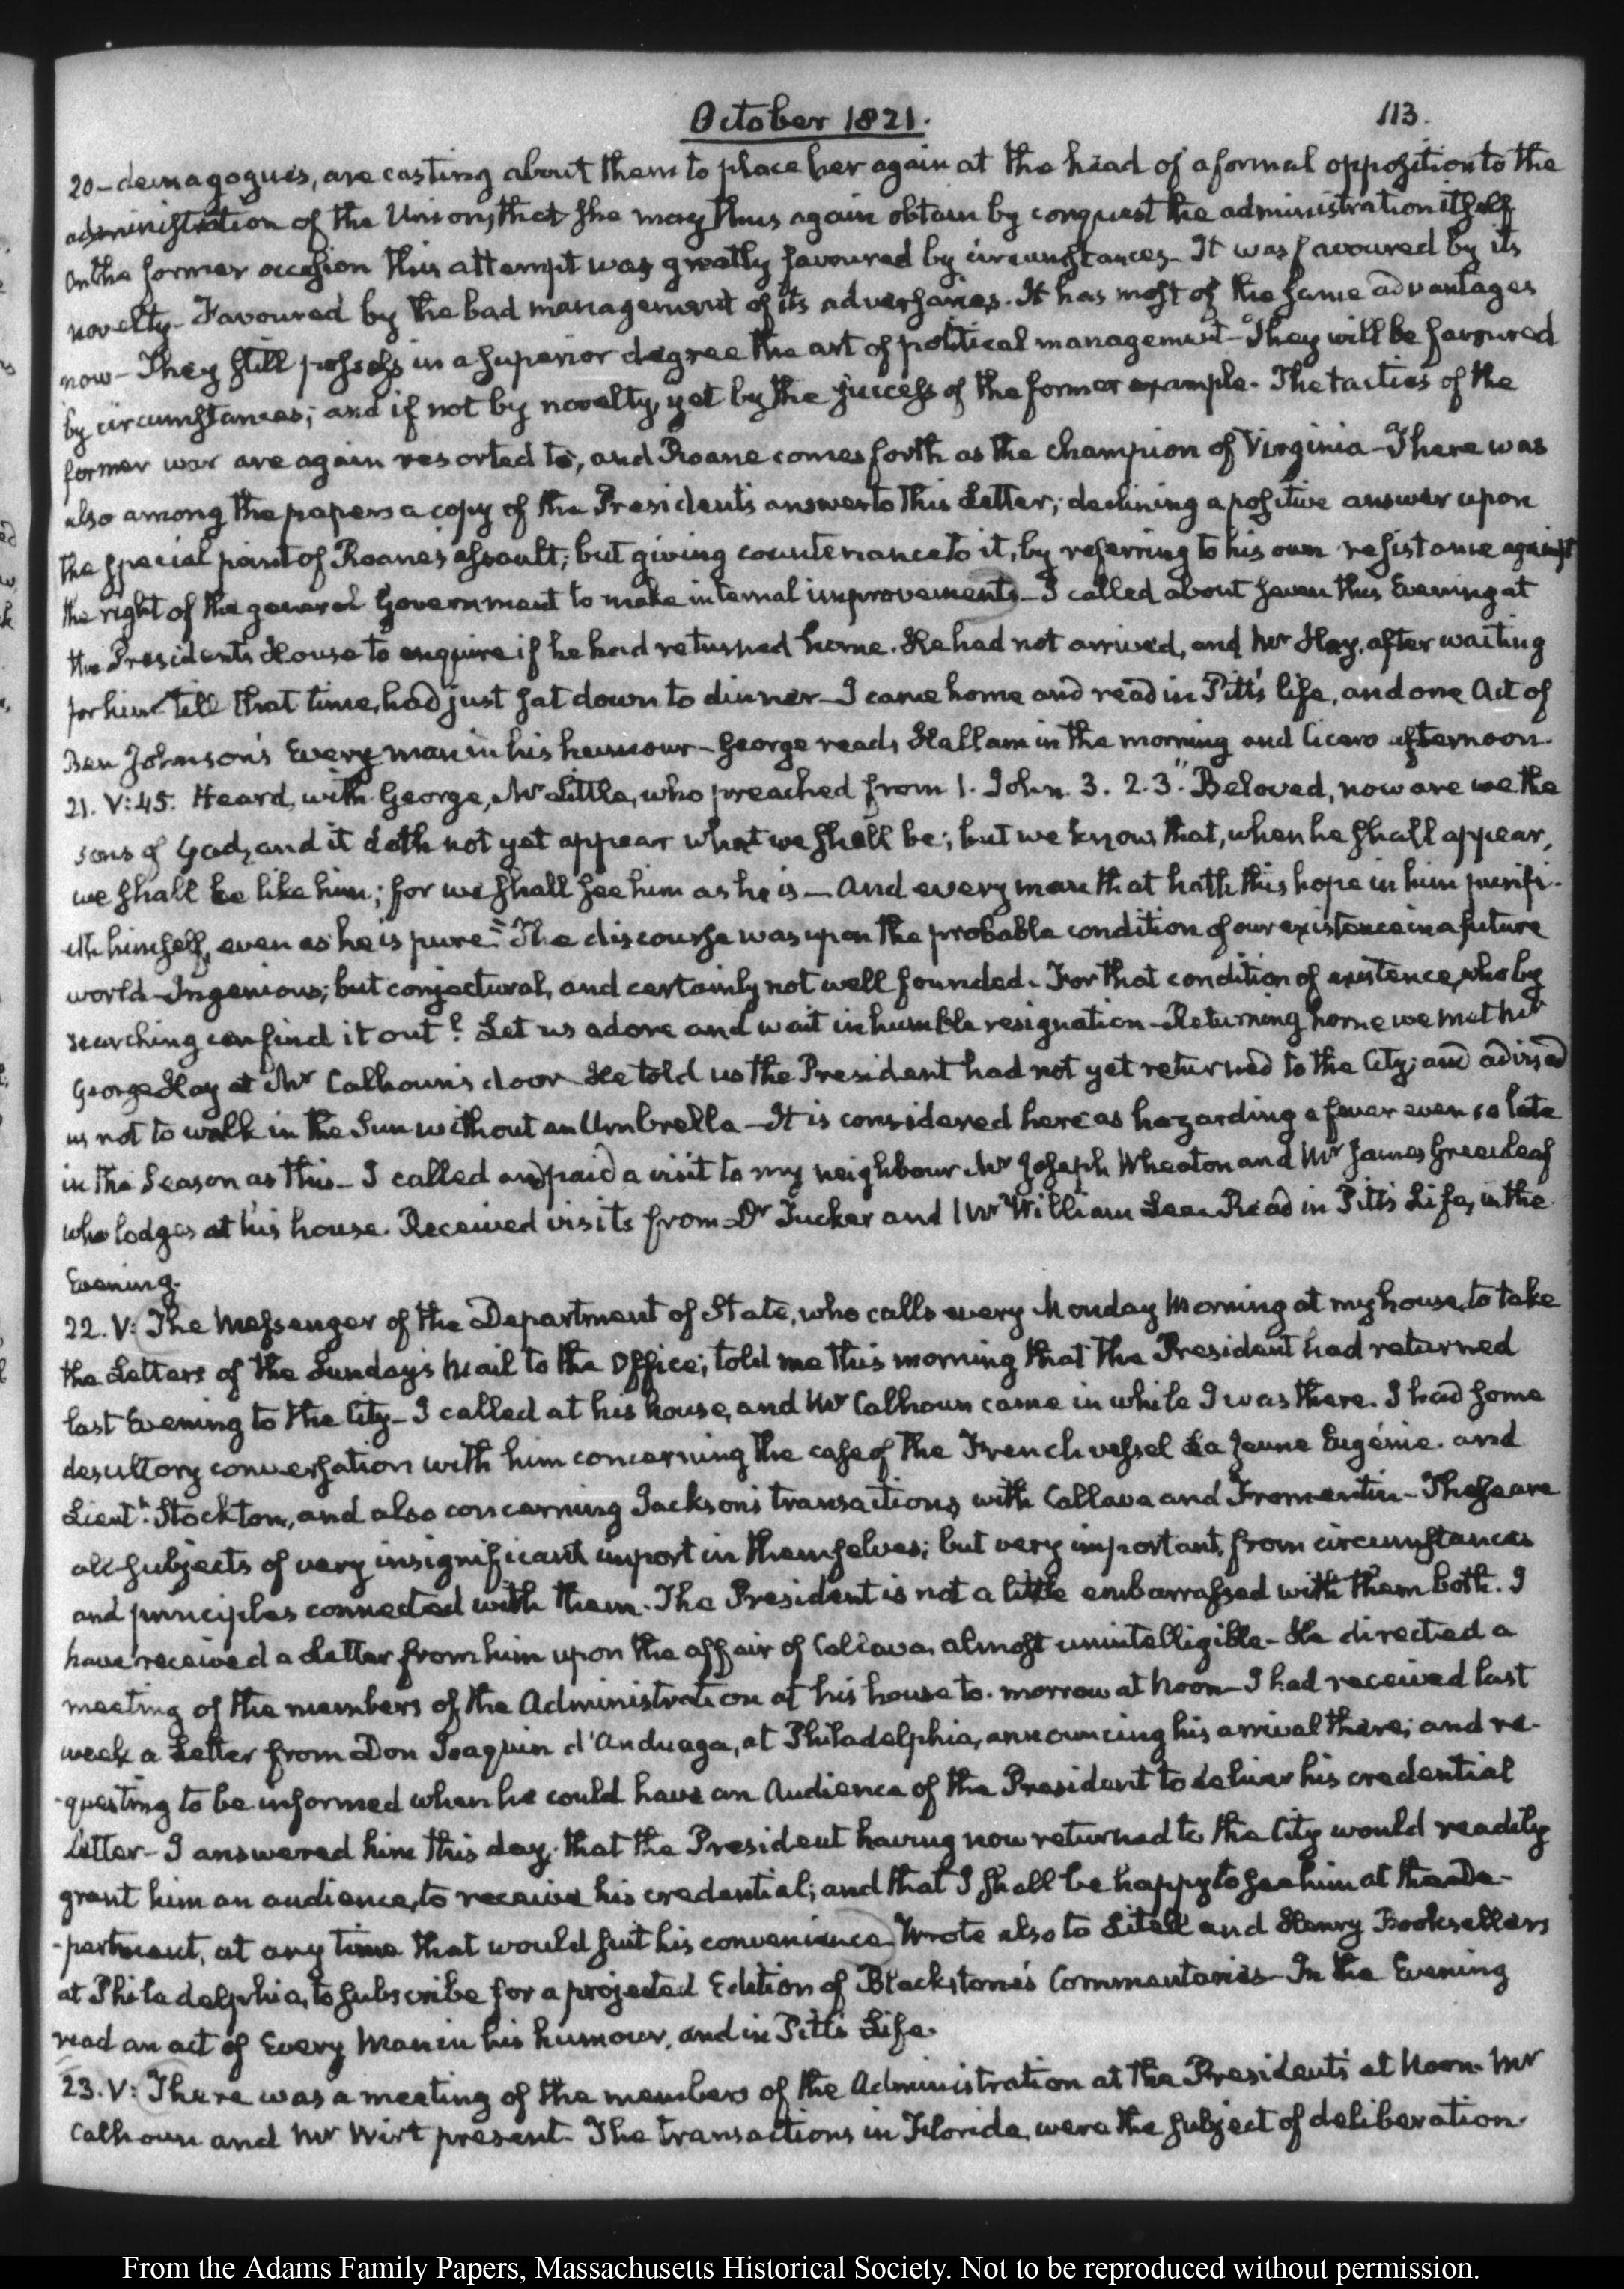 October 1821.
113.
20 - demagogues, are casting about them to place her again at the head of a formal opposition to the
administration of the Union, that she may thus again obtain by conquest the administration itself
On the former occasion this attempt was greatly favoured by circumstances - It was favoured by its
novelty - Favoured by the bad management of its adversaries. It has most of the same advantages
now - They still possess in a superior degree the art of political management - They will be favoured
by circumstances; and if not by novelty, yet by the success of the former example. The tactics of the
former war are again resorted to, and Roane comes forth as the champion of Virginia - There was
also among the papers a copy of the President's answer to this Letter; declining a positive answer upon
the special point of Roane's assault; but giving countenance to it, by referring to his own resistance against
the right of the general Government to make internal improvements - I called about seven this Evening at
the President's House to enquire if he had returned home. He had not arrived, and Mr Hay, after waiting
for him till that time, had just sat down to dinner - I came home and read in Pitt's life, and one Act of
Ben Johnson's Every man in his humour - George reads Hallam in the morning and Cicero afternoon.
21. V:45. Heard, with George, Mr Little, who preached from 1. John. 3. 2. 3. "Beloved, now are we the
sons of God, and it doth not yet appear what we shall be; but we know that, when he shall appear,
we shall be like him; for we shall see him as he is - And every man that hath this hope in him purifi-
eth himself, even as he is pure." The discourse was upon the probable condition of our existence in a future
world - Ingenious; but conjectural, and certainly not well founded - For that condition of existence, who by
searching can find it out? Let us adore and wait in humble resignation - Returning home we met Mr
George Hay at Mr Calhoun's door He told us the President had not yet returned to the City; and advised
us not to walk in the Sun without an Umbrella - It is considered here as hazarding a fever even so late
in the Season as this - I called and paid a visit to my neighbour Mr Joseph Wheaton and Mr James Greenleaf
who lodges at his house. Received visits from Dr Tucker and Mr William Lee. Read in Pitt's Life, in the
Evening.
22. V: The Messenger of the Department of State, who calls every Monday Morning at my house, to take
the Letters of the Sunday's Mail to the Office; told me this morning that the President had returned
last Evening to the City - I called at his house, and Mr Calhoun came in while I was there. I had some
desultory conversation with him concerning the case of the French vessel La Jeune Eugénie. and
Lieutt. Stockton, and also concerning Jackson's transactions with Callava and Fromentin - These are
all subjects of very insignificant import in themselves; but very important, from circumstances
and principles connected with them. The President is not a little embarrassed with them both. I
have received a Letter from him upon the affair of Callava, almost unintelligible - He directed a
meeting of the members of the Administration at his house to-morrow at Noon - I had received last
week a Letter from Don Joaquin d'Anduaga, at Philadelphia, announcing his arrival there; and re-
-questing to be informed when he could have an Audience of the President to deliver his credential
Letter - I answered him this day. that the President having now returned to the City would readily
grant him an audience, to receive his credential; and that I shall be happy to see him at the De-
-partment, at any time that would suit his convenience. Wrote also to Litell and Henry Booksellers
at Philadelphia, to subscribe for a projected Edition of Blackstone's Commentaries - In the Evening
read an act of Every Man in his humour, and in Pitt's Life.
23. V: There was a meeting of the members of the Administration at the President's at Noon. Mr
Calhoun and Mr Wirt present. The transactions in Florida, were the subject of deliberation.
From the Adams Family Papers, Massachusetts Historical Society. Not to be reproduced without permission.